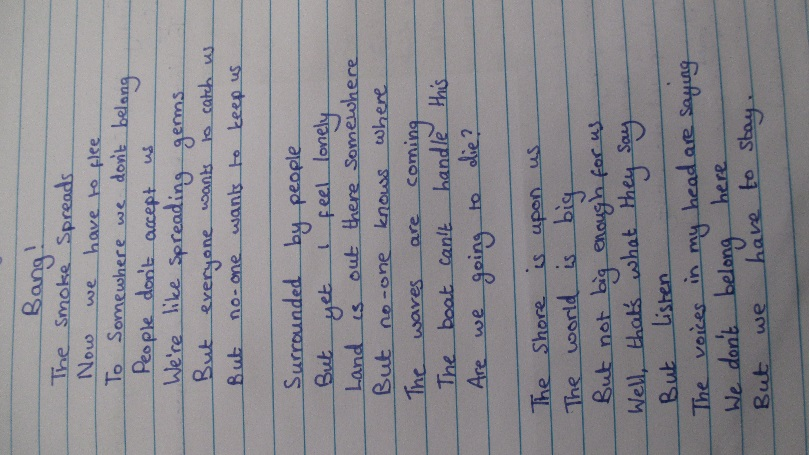 Bang!
The smoke spreads
Now we have to flee
To somewhere we don't belong
People don't accept us
We're like spreading germs
But everyone wants to catch us
But no-one wants to keep us
Surrounded by people
But yet I feel lonely
Land is out there somewhere
But no-one knows where
The waves are coming
The boat can't handle this
Are we going to die?
The shore is upon us
The world is big
But not big enough for us
Well, that's what they say
But listen
The voices in my head are saying
We don't belong here
But we have to stay.